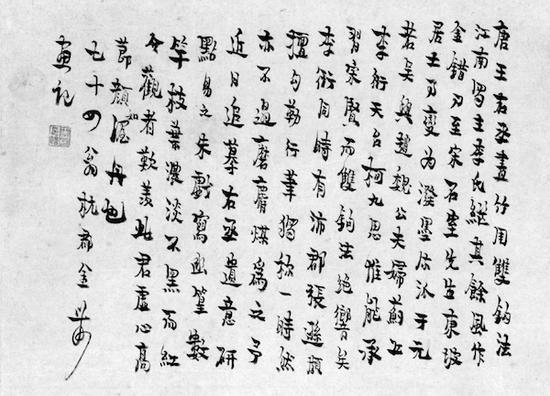 唐王右丞畫竹用雙鈎法
江南國主李氏繼其餘風作
金錯刀至宋石室先生東坡
居士乃變為潑墨派于元
若吳興趙魏公夫婦薊丘
李衎天台柯九思惟能承
習宋賢而雙鈎法絕響矣
李衎同時有沛郡張遜頗
擅勾勒行筆獨絕一時然
亦不過磨麝煤為之予
近日追摹右丞遺意研
點易之朱戲寫幽篁數
竿枝葉濃淡不黑而紅
令觀者歎羨此君虛心高
節顏如渥丹也
七十四翁杭郡金農
畫記